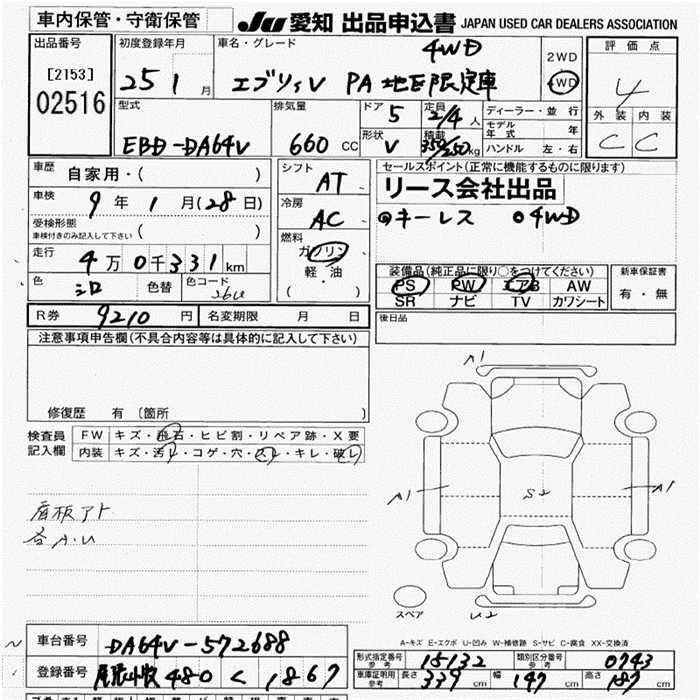 車内保管・守衛保管
JU 愛知 出品申込書 JAPAN USED CAR DEALERS ASSOCIATION
出品番号
[2153]
02516
初度登録年月
25 1 月
車名・グレード
4WD
エブリィV PA
2WD
4WD
評価点
4
外装 内装
C C
型式
EBD-DA64V
排気量
660 cc
ドア 5
形状 V
定員 2/4 人
積載 350/250 kg
ディーラー・並行
モデル年式 年
ハンドル 左・右
車歴 自家用・( )
車検 9年 1月(28日)
受検形態
車検付きのみ記入して下さい ( )
走行 4万0千331km
色 シロ 色替 色コード 26U
シフト AT
冷房 AC
燃料
ガソリン
軽・油
( )
セールスポイント(正常に機能するものに限ります)
リース会社出品
◎キーレス ◎4WD
装備品(純正品に限り○をつけてください)
PS PW エアB AW
SR ナビ TV カワシート
新車保証書
有・無
R券 9210 円 名変期限 月 日
後日品
注意事項申告欄(不具合内容等は具体的に記入して下さい)
修復歴 有(箇所 )
検査員記入欄
FW キズ・飛石・ヒビ割・リペア跡・X要
内装 キズ・汚れ・コゲ・穴・スレ・キレ・破レ
看板アト
各A.U
A1
A1
S2
A1
スペア
U2
A-キズ E-エクボ U-凹み W-補修跡 S-サビ C-腐食 XX-交換済
車台番号 DA64V-572688
登録番号 尾張小牧 480 く 1867
形式指定番号 参考 15132 類別区分番号 参考 0743
車庫証明用 参考 長さ 339 cm 幅 147 cm 高さ 187 cm